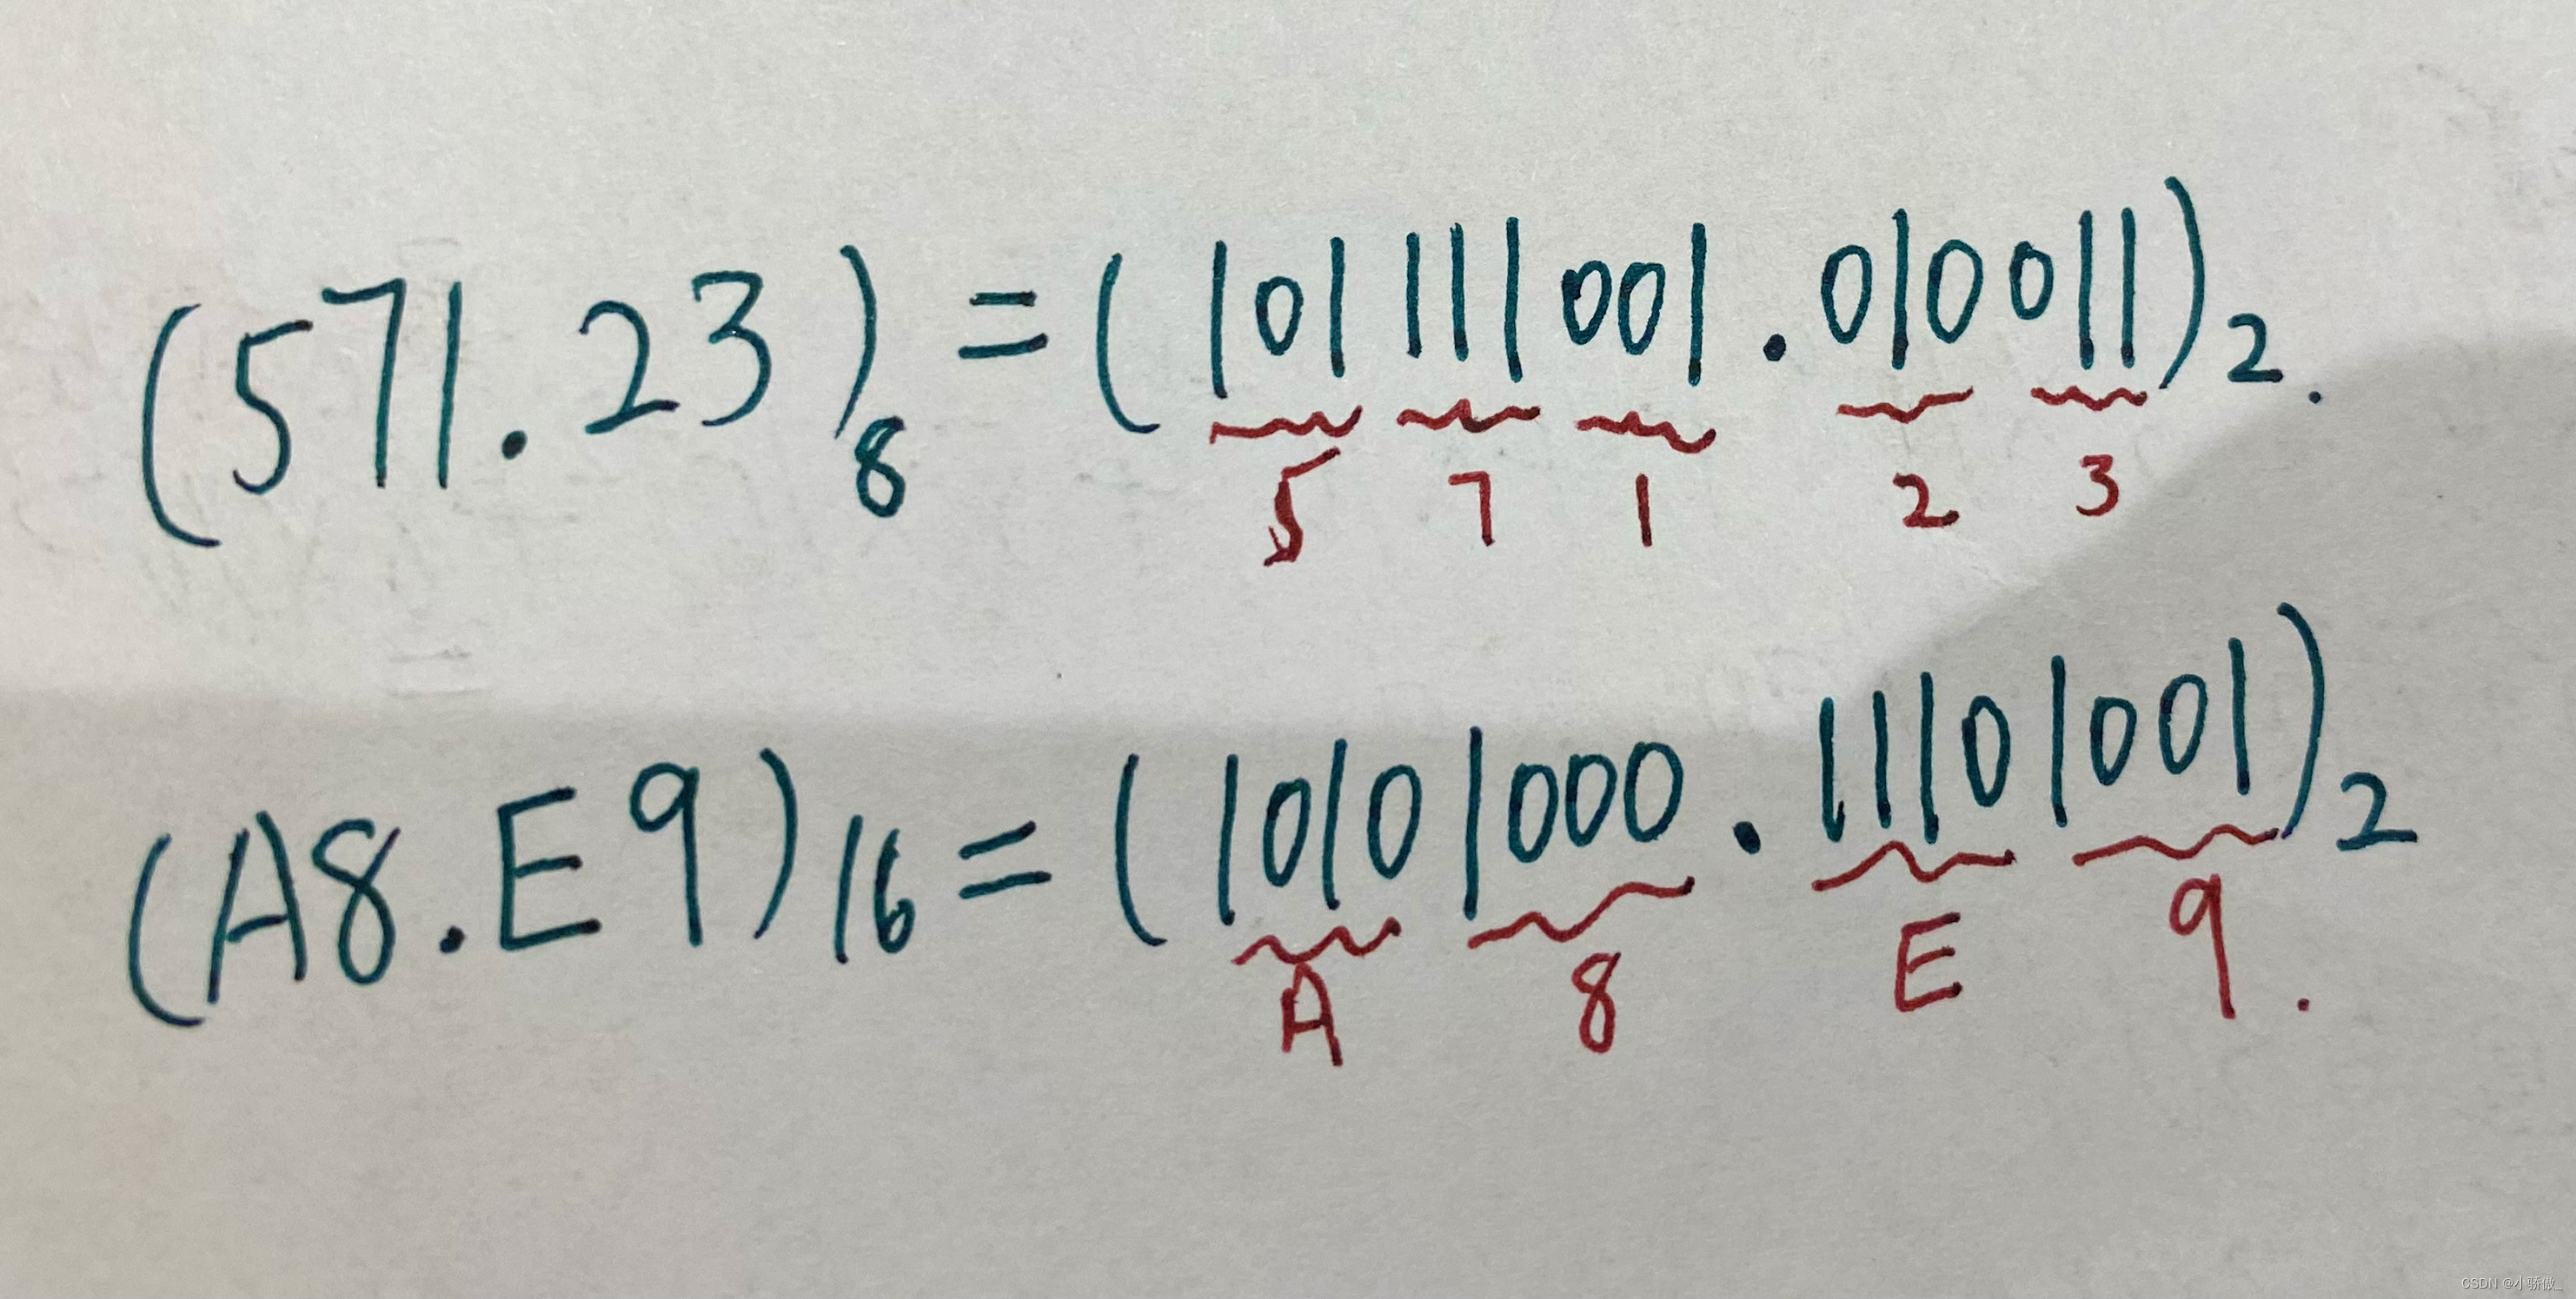 (571.23)8 = (101 111 001 . 010 011)2.
5 7 1 2 3
(A8.E9)16 = (1010 1000 . 1110 1001)2
A 8 E 9.
CSDN @小骄傲_